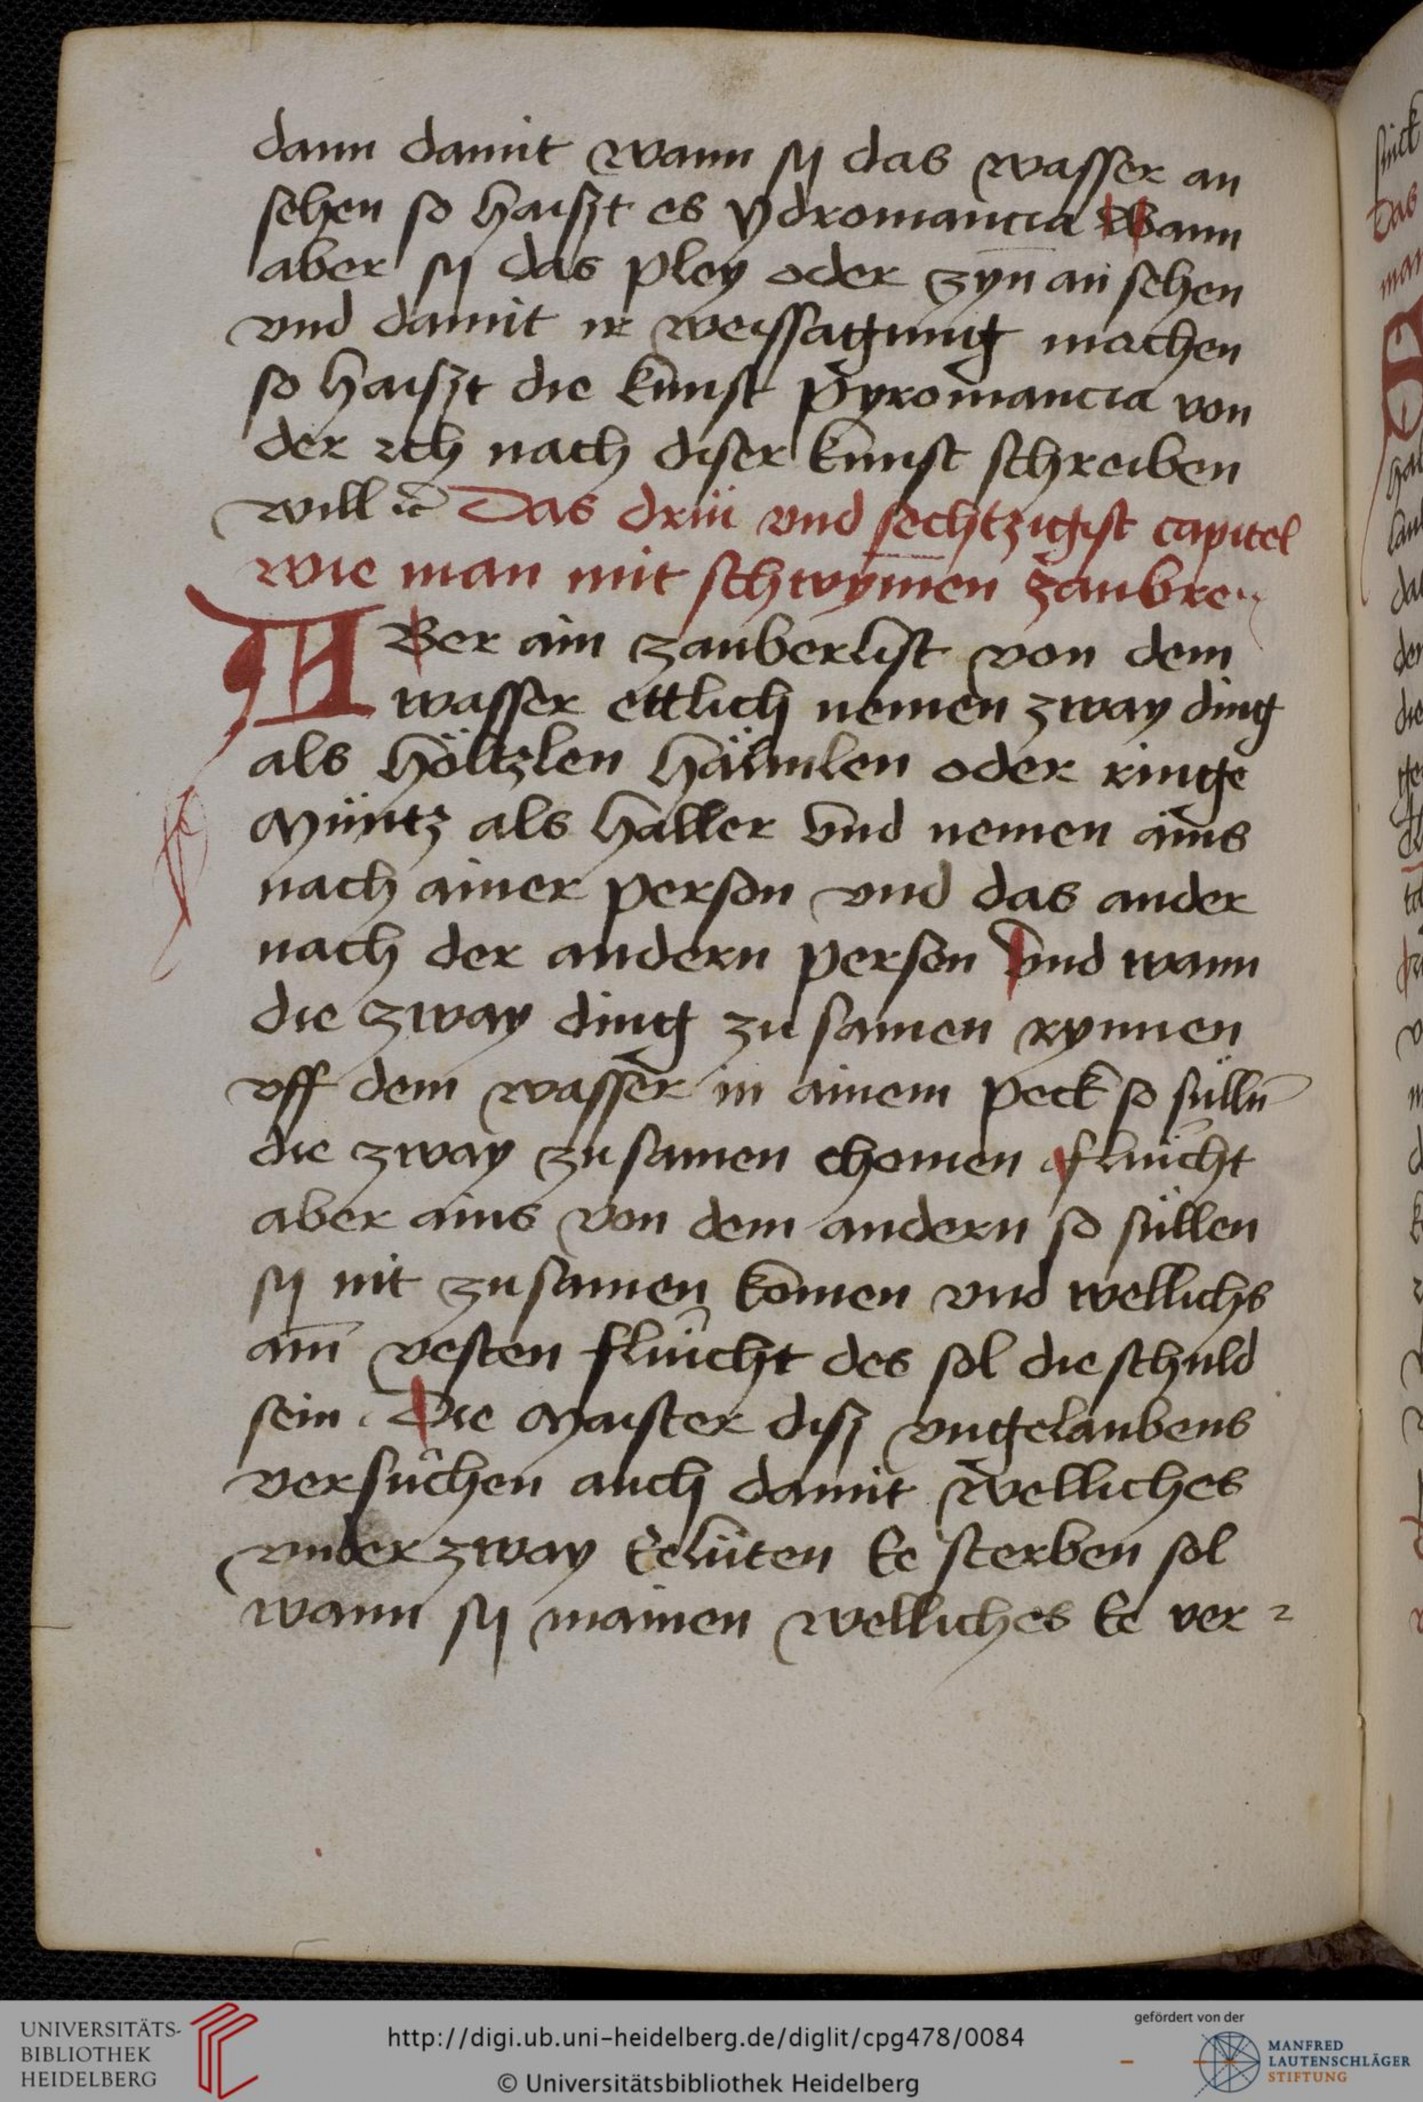 dann damit wann sÿ das wasser an
sehen so haiszt es ÿdromancia Wann
aber sÿ das pley oder zyn an sehen
vnd damit ir weissagung machen
so haiszt die kunst pyromancia von
der ich nach diser kunst schreiben
will ꝛc̄ Das drüi vnd sechtzigist capitel
wie man mit schwym̄en zaubre
ABer ain zauberlist von dem
wasser ettlich nemen zway ding
als höltzlen hälmlen oder ringe
Müntz als haller vnd nemen ains
nach ainer person vnd das ander
nach der andern person Vnd wann
die zway ding zu samen rynnen
vff dem wasser in ainem peck so sülln̄
die zway zu samen chomen flücht
aber ains von dem andern so süllen
sÿ nit zu samen komen vnd wellichs
am̄ vesten flücht des sol die schuld
sein . Die Maister disz vngelaubens
versuͦchen auch damit welliches
vnder zway Eelüten Ee sterben sol
wann sÿ mainen welliches Ee ver⸗
Das
UNIVERSITÄTS-
BIBLIOTHEK
HEIDELBERG
http://digi.ub.uni-heidelberg.de/diglit/cpg478/0084
© Universitätsbibliothek Heidelberg
gefördert von der
MANFRED
LAUTENSCHLÄGER
STIFTUNG